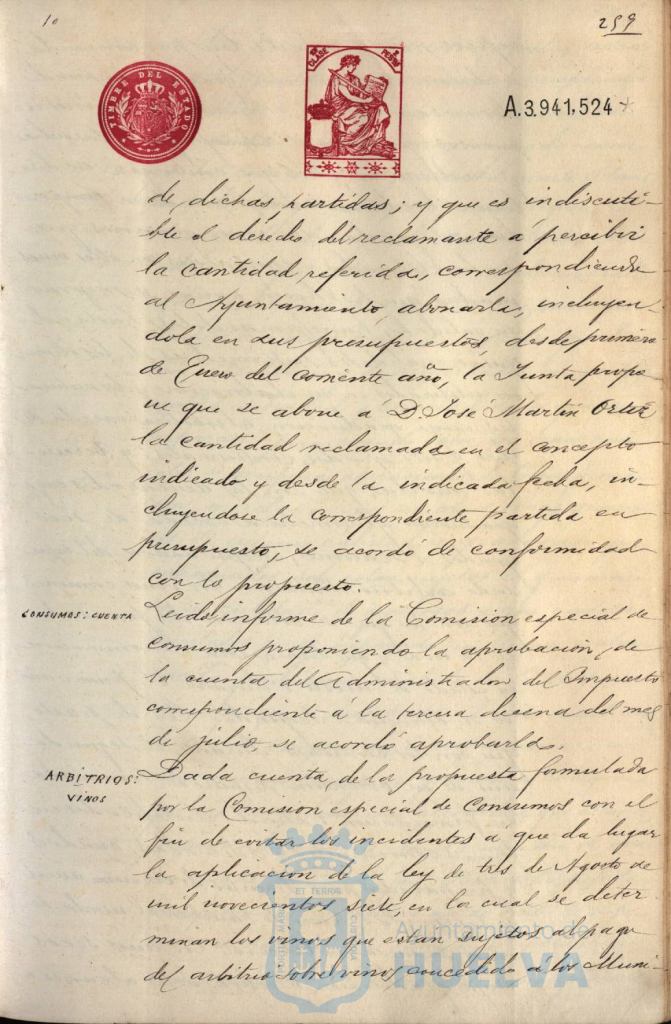 10
259
TIMBRE DEL ESTADO
CLASE PESETA
A.3.941,524
de dichas partidas; y que es indiscuti-
ble el derecho del reclamante á percibir
la cantidad referida, correspondiendo
al Ayuntamiento, abonarla, incluyen-
dola en sus presupuestos, desde primero
de Enero del corriente año, la Junta propo-
ne que se abone á D. José Martín Ortiz
la cantidad reclamada en el concepto
indicado y desde la indicada fecha, in-
cluyendose la correspondiente partida en
presupuesto, se acordó de conformidad
con lo propuesto.
CONSUMOS: CUENTA
Leido informe de la Comision especial de
consumos proponiendo la aprobación, de
la cuenta del Administrador del Impuesto
correspondiente á la tercera decena del mes
de julio, se acordó aprobarla.
ARBITRIOS:
VINOS
Dada cuenta, de la propuesta formulada
por la Comision especial de Consumos con el
fin de evitar los incidentes a que da lugar
la aplicacion de la ley de tres de Agosto de
mil novecientos siete, en la cual se deter-
minan los vinos que estan sujetos al pago
del arbitrio sobre vinos concedido á los Muni-
Ayuntamiento de
HUELVA